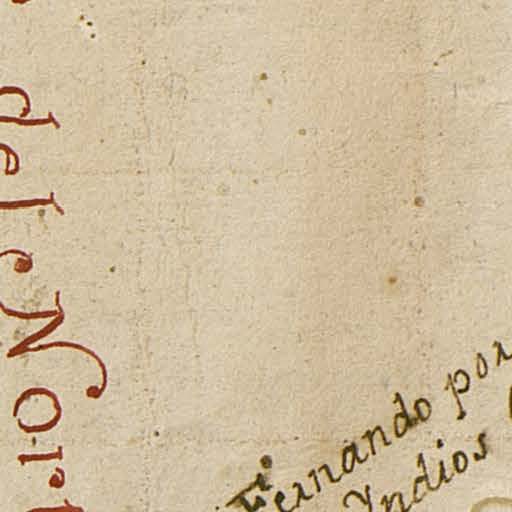 del Nor
Fernando por
Yndios